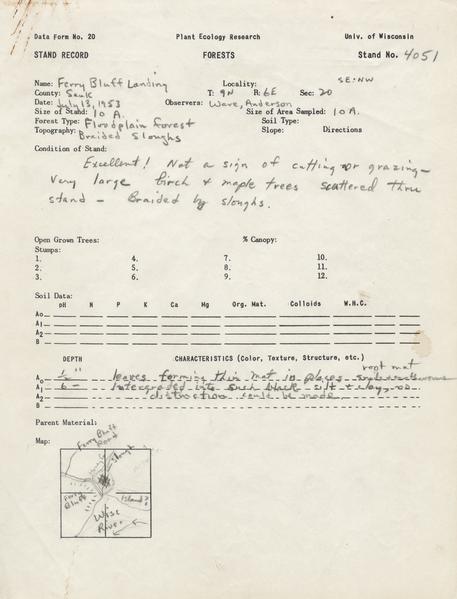 Data Form No. 20 Plant Ecology Research Univ. of Wisconsin
STAND RECORD FORESTS Stand No. 4051
SE:NW
Name: Ferry Bluff Landing Locality:
County: Sauk T: 9N R: 6E Sec: 20
Date: July 13, 1953 Observers: Ware, Anderson
Size of Stand: 10 A. Size of Area Sampled: 10 A.
Forest Type: Floodplain forest Soil Type:
Topography: Braided Sloughs Slope: Directions
Condition of Stand:
Excellent! Not a sign of cutting or grazing -
Very large birch & maple trees scattered thru
stand - Braided by sloughs.
Open Grown Trees: % Canopy:
Stumps:
1. 4. 7. 10.
2. 5. 8. 11.
3. 6. 9. 12.
Soil Data:
pH N P K Ca Mg Org. Mat. Colloids W.H.C.
Ao
A1
A2
B
DEPTH CHARACTERISTICS (Color, Texture, Structure, etc.)
root mat
Ao ½" leaves forming thin mat in places
A1 6- Intergraded into such black silt & clay, no
A2 distinction could be made
B
Parent Material:
Map:
Ferry Bluff
Road
Slough
Ferry
Bluff
Island?
Wisc
River